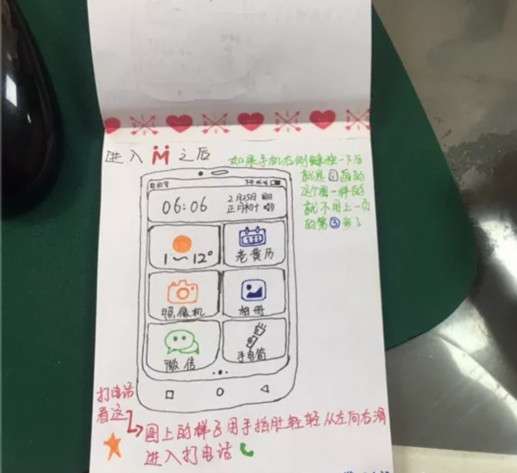 进入 之后
如果手机右侧键按一下后
就是图画的
这个画一样的
就不用上一页
的第③步了
06:06
2月25日
1~12°
老黄历
照像机
相册
微信
手电筒
打电话
看这
图上的样子用手指肚轻轻从左向右滑
进入打电话